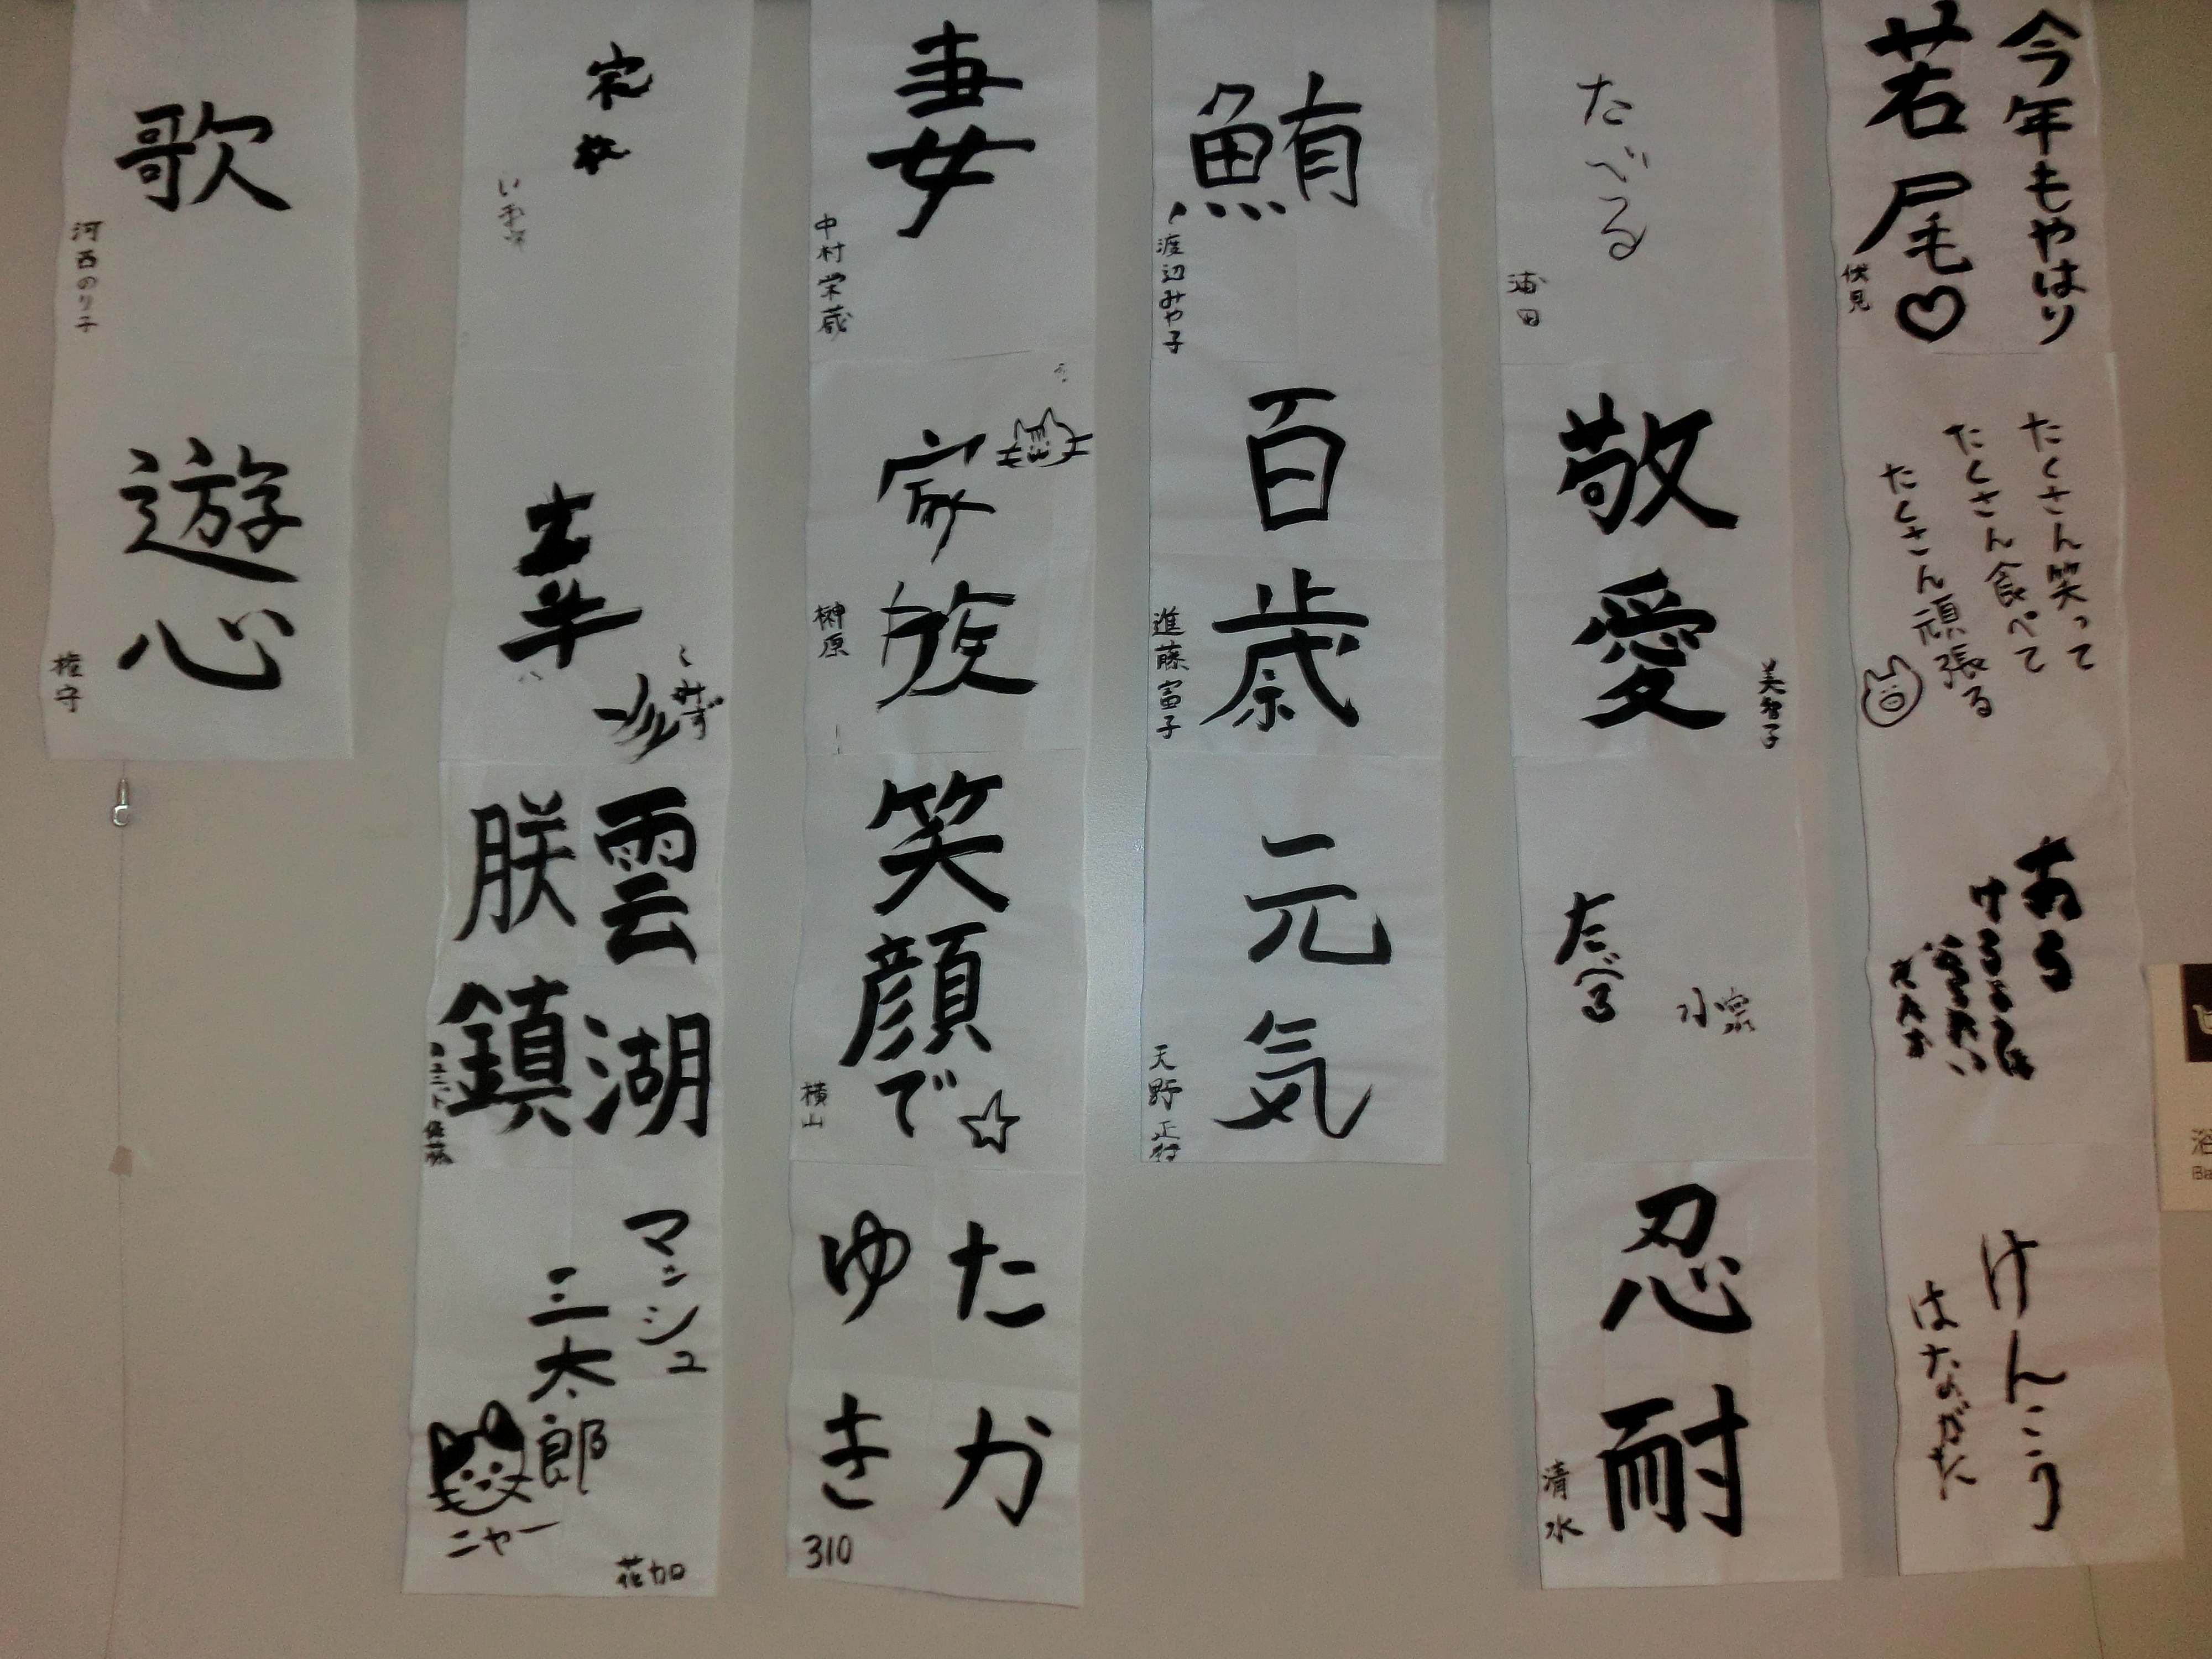 今年もやはり
若尾♡
伏見
たくさん笑って
たくさん食べて
たくさん頑張る
ある
けんこう
はながた
たべる
浦田
敬愛
美智子
たべる
小泉
忍耐
清水
鮪
渡辺みや子
百歳
進藤富子
元気
天野正行
妻
中村栄蔵
家族
榊原
笑顔で☆
横山
たか
ゆき
310
雲湖
朕鎮
佐藤
マンシュ
三太郎
ニャー
花加
歌
河西のり子
遊心
権守
浴
Ba